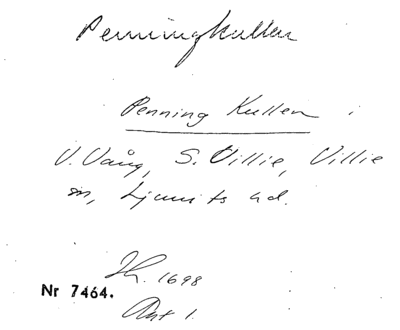 Penningkullen
Penning Kullen i
V. Vång, S. Villie, Villie
sn, Ljunits hd.
1698
Nr 7464.
Akt 1.